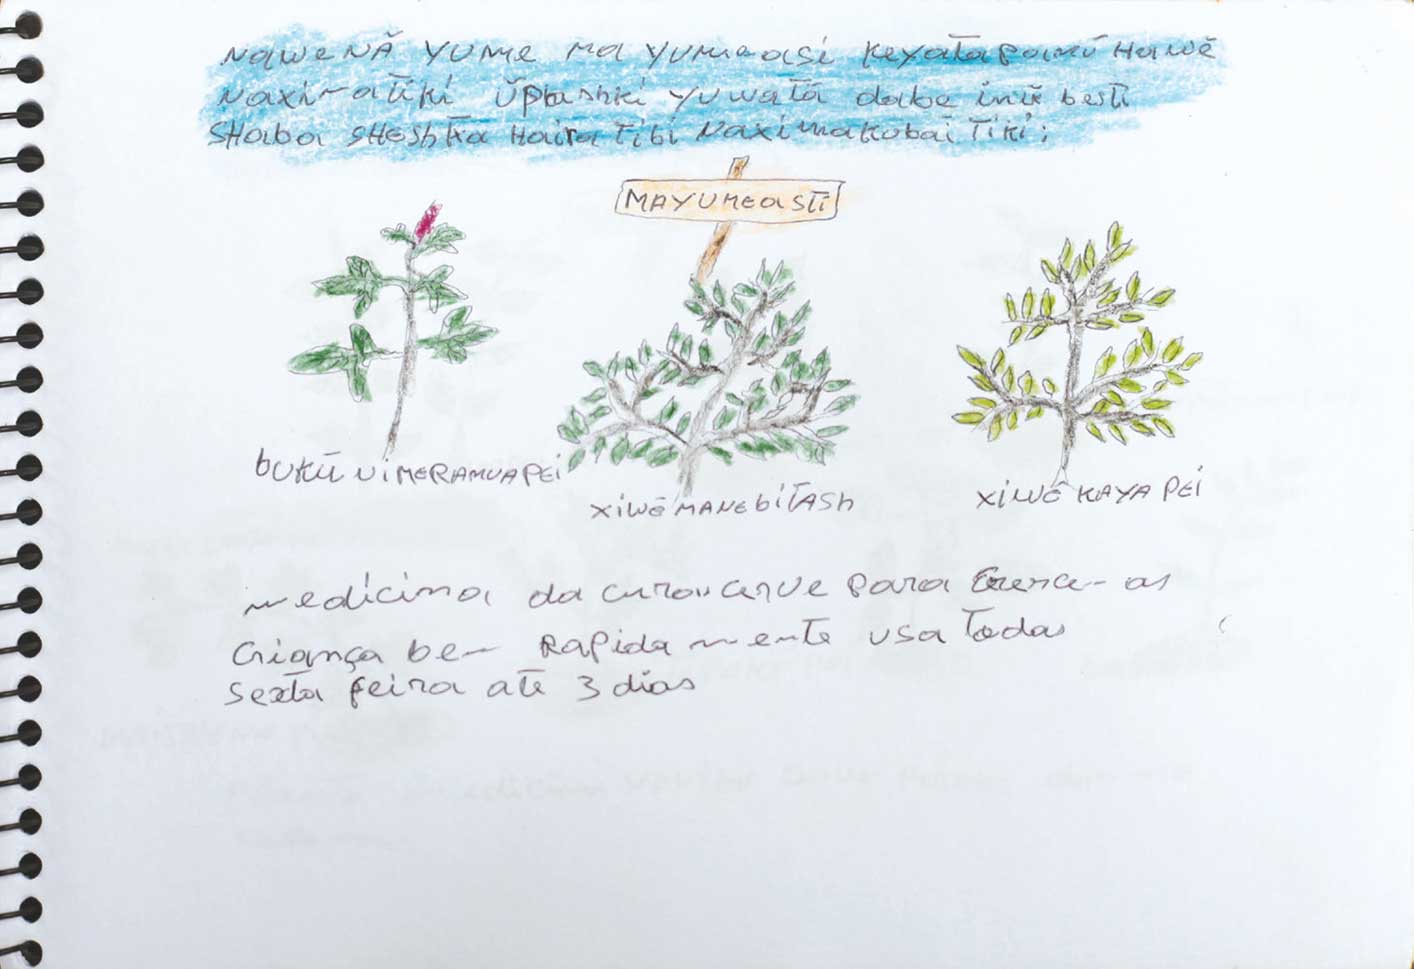 NAWENÃ YUME MA YUMEASI KEYATAPANŨ HAWẼ
NAXIMATIKI ŨPASHKI YUWATÃ DABE INŨ BESTI
SHABA SHESHKA HAIRA TIBI NAXIMAKUBAITIKI;
MAYUMEASTI
BUKŨ NIMERAMUAPEI
XIWẼ MANEBITASH
XIWẼ KAYA PEI
medicina da serve para as
criança bem Rapida mente usa todas
sexta feira até 3 dias